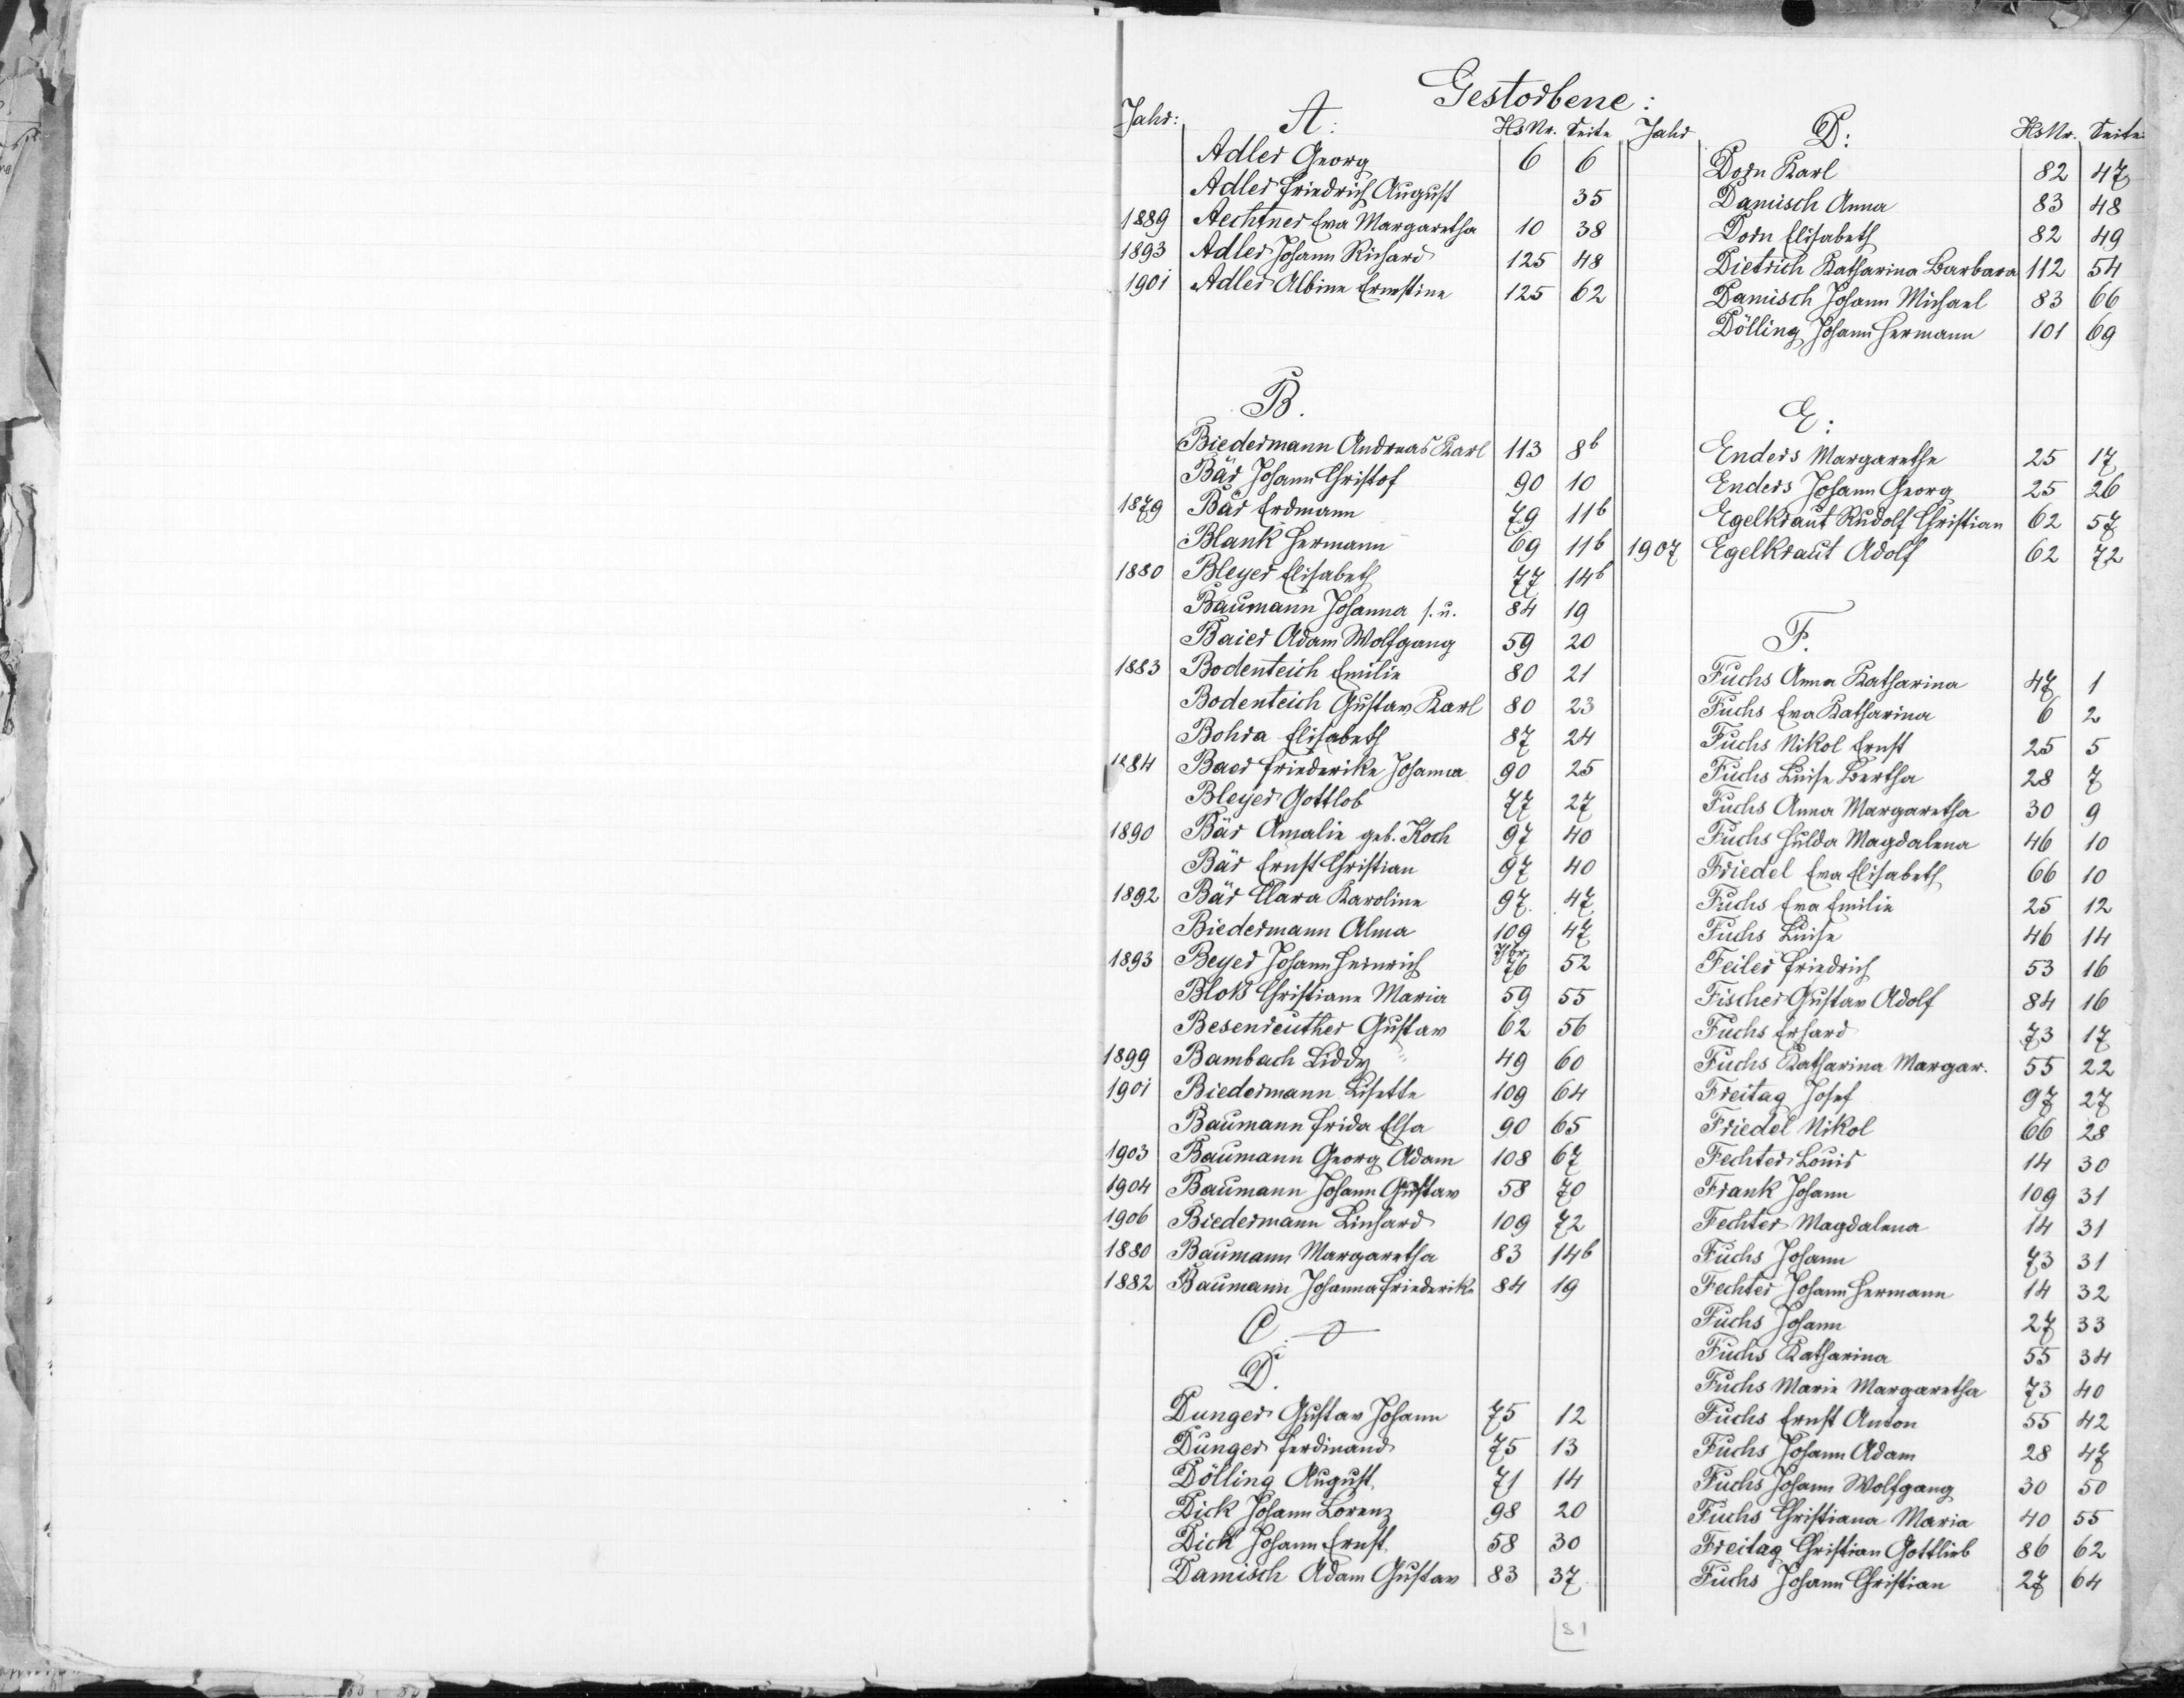 Gestorbene:
Jahr: A: HsNr. Seite
Adler Georg 6 6
Adler Friedrich August 35
1889 Aechtner Eva Margaretha 10 38
1893 Adler Johann Richard 125 48
1901 Adler Albine Ernestine 125 62
B.
Biedermann Andreas Karl 113 8b
Bär Johann Christof 90 10
1879 Bär Erdmann 79 11b
Blank Hermann 69 11b
1880 Bleyer Elisabeth 77 14b
Baumann Johanna s. u. 84 19
Baier Adam Wolfgang 59 20
1883 Bodenteich Emilie 80 21
Bodenteich Gustav Karl 80 23
Bohra Elisabeth 87 24
1884 Baer Friederike Johanna 90 25
Bleyer Gottlob 77 27
1890 Bär Amalie geb. Koch 97 40
Bär Ernst Christian 97 40
1892 Bär Clara Karoline 97. 47
Biedermann Alma 109 47
1893 Beyer Johann Heinrich 76 52
Blok Christiane Maria 59 55
Besenreuther Gustav 62 56
1899 Bambach Liddy 49 60
1901 Biedermann Lisette 109 64
Baumann Frida Elsa 90 65
1903 Baumann Georg Adam 108 67
1904 Baumann Johann Gustav 58 70
1906 Biedermann Linhard 109 72
1880 Baumann Margaretha 83 14b
1882 Baumann Johanna Friederike 84 19
C.
D.
Dunger Gustav Johann 75 12
Dunger Ferdinand 75 13
Dölling August 71 14
Dick Johann Lorenz 98 20
Dick Johann Ernst. 58 30
Damisch Adam Gustav 83 37
Jahr D: HsNr. Seite
Dorn Karl 82 47
Damisch Anna 83 48
Dorn Elisabeth 82 49
Dietrich Katharina Barbara 112 54
Damisch Johann Michael 83 66
Dölling Johann Hermann 101 69
E:
Enders Margarethe 25 17
Enders Johann Georg 25 26
Egelkraut Rudolf Christian 62 57
1907 Egelkraut Adolf 62 72
F.
Fuchs Anna Katharina 47 1
Fuchs Eva Katharina 6 2
Fuchs Nikol Ernst 25 5
Fuchs Luise Bertha 28 7
Fuchs Anna Margaretha 30 9
Fuchs Hulda Magdalena 46 10
Friedel Eva Elisabeth 66 10
Fuchs Eva Emilie 25 12
Fuchs Luise 46 14
Feiler Friedrich 53 16
Fischer Gustav Adolf 84 16
Fuchs Erhard 73 17
Fuchs Katharina Margar. 55 22
Freitag Josef 97 27
Friedel Nikol 66 28
Fechter Louis 14 30
Frank Johann 109 31
Fechter Magdalena 14 31
Fuchs Johann 73 31
Fechter Johann Hermann 14 32
Fuchs Johann 27 33
Fuchs Katharina 55 34
Fuchs Marie Margaretha 73 40
Fuchs Ernst Anton 55 42
Fuchs Johann Adam 28 47
Fuchs Johann Wolfgang 30 50
Fuchs Christiana Maria 40 55
Freitag Christian Gottlieb 86 62
Fuchs Johann Christian 27 64
51